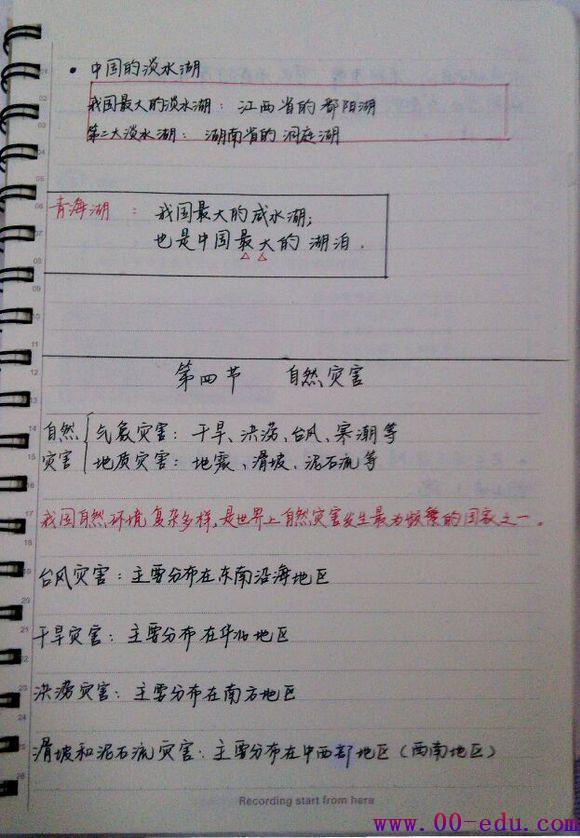 • 中国的淡水湖
我国最大的淡水湖：江西省的鄱阳湖
第二大淡水湖：湖南省的洞庭湖
青海湖：我国最大的咸水湖；
也是中国最大的湖泊．
第四节 自然灾害
自然 气象灾害：干旱、洪涝、台风、寒潮等
灾害 地质灾害：地震、滑坡、泥石流等
我国自然环境复杂多样，是世界上自然灾害发生最为频繁的国家之一。
台风灾害：主要分布在东南沿海地区
干旱灾害：主要分布在华北地区
洪涝灾害：主要分布在南方地区
滑坡和泥石流灾害：主要分布在中西部地区（西南地区）
Recording start from here
www.00-edu.com